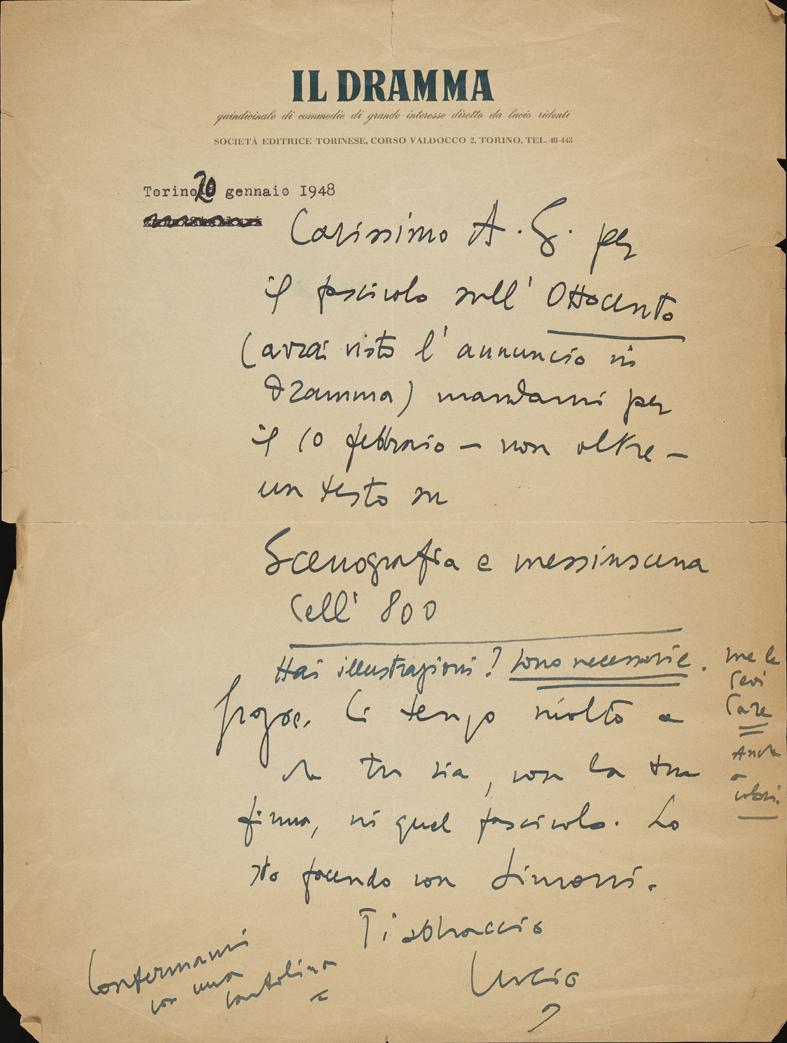 IL DRAMMA
quindicinale di commedie di grande interesse diretto da lucio ridenti
SOCIETÀ EDITRICE TORINESE, CORSO VALDOCCO 2, TORINO, TEL. 40-443
Torino 20 gennaio 1948
Carissimo A. G. per
il fascicolo sull' Ottocento
(avrai visto l'annuncio in
Dramma) mandami per
il 10 febbraio – non oltre –
un testo su
Scenografia e messinscena
dell' 800
Hai illustrazioni? Sono necessarie. me le
devi
dare
Anche
a
colori.
Ci tengo molto a
che tu sia, con la tua
firma, in quel fascicolo. Lo
sto facendo con Simoni.
Ti abbraccio
Lucio
Confermami
con una
cartolina